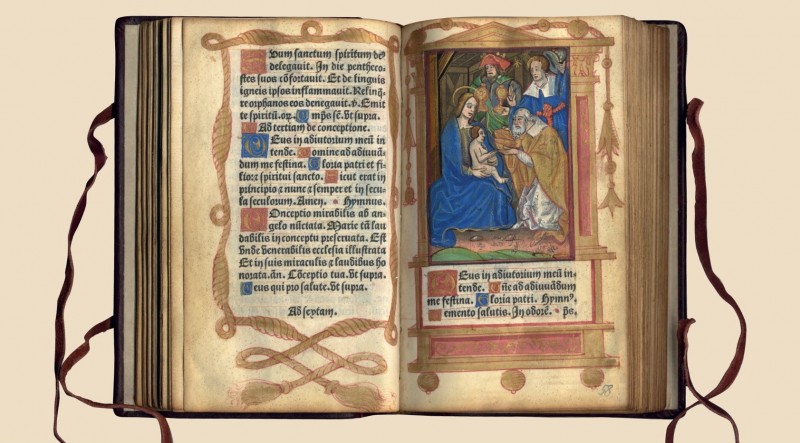 Dum sanctum spiritum dẽ
delegauit. In die pentheco-
stes suos cõfortauit. Et de linguis
igneis ipsos inflammauit. Relinq̃-
re orphanos eos denegauit. v̓. Emit
te spiritũ. or. Omps sẽ. vt supra.
Ad tertiam de conceptione.
Deus in adiutorium meũ in
tende. Domine ad adiuuã-
dum me festina. Gloria patri et fi-
lio: ⁊ spiritui sancto. Sicut erat in
principio ⁊ nunc ⁊ semper et in secu
la seculorum. Amen. Hymnus.
Conceptio mirabilis ab an
gelo nũciata. Marie tãm lau
dabilis in conceptu preseruata. Est
vnde venerabilis ecclesia illustrata
Et in suis miraculis ⁊ laudibus ho
norata. an. Cõceptio tua. vt supra.
Deus qui pro salute. vt supra.
Ad sextam.
Deus in adiutorium meũ in-
tende. Dñe ad adiuuãdum
me festina. Gloria patri. Hymnꝰ.
Memento salutis. In odorẽ. ps.